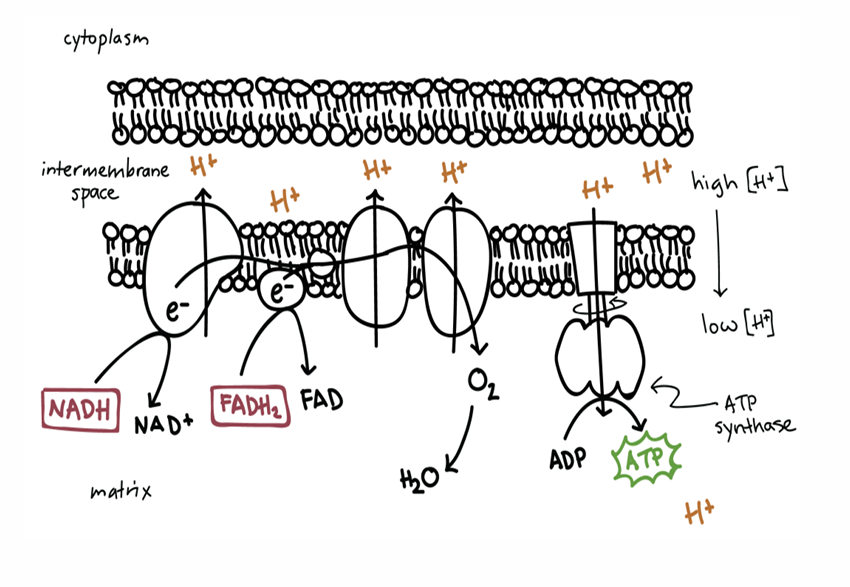 cytoplasm
intermembrane
space
H+
H+
H+
H+
H+
H+
high [H+]
low [H+]
e-
e-
NADH
NAD+
FADH₂
FAD
O₂
H₂O
ATP
synthase
ADP
ATP
matrix
H+